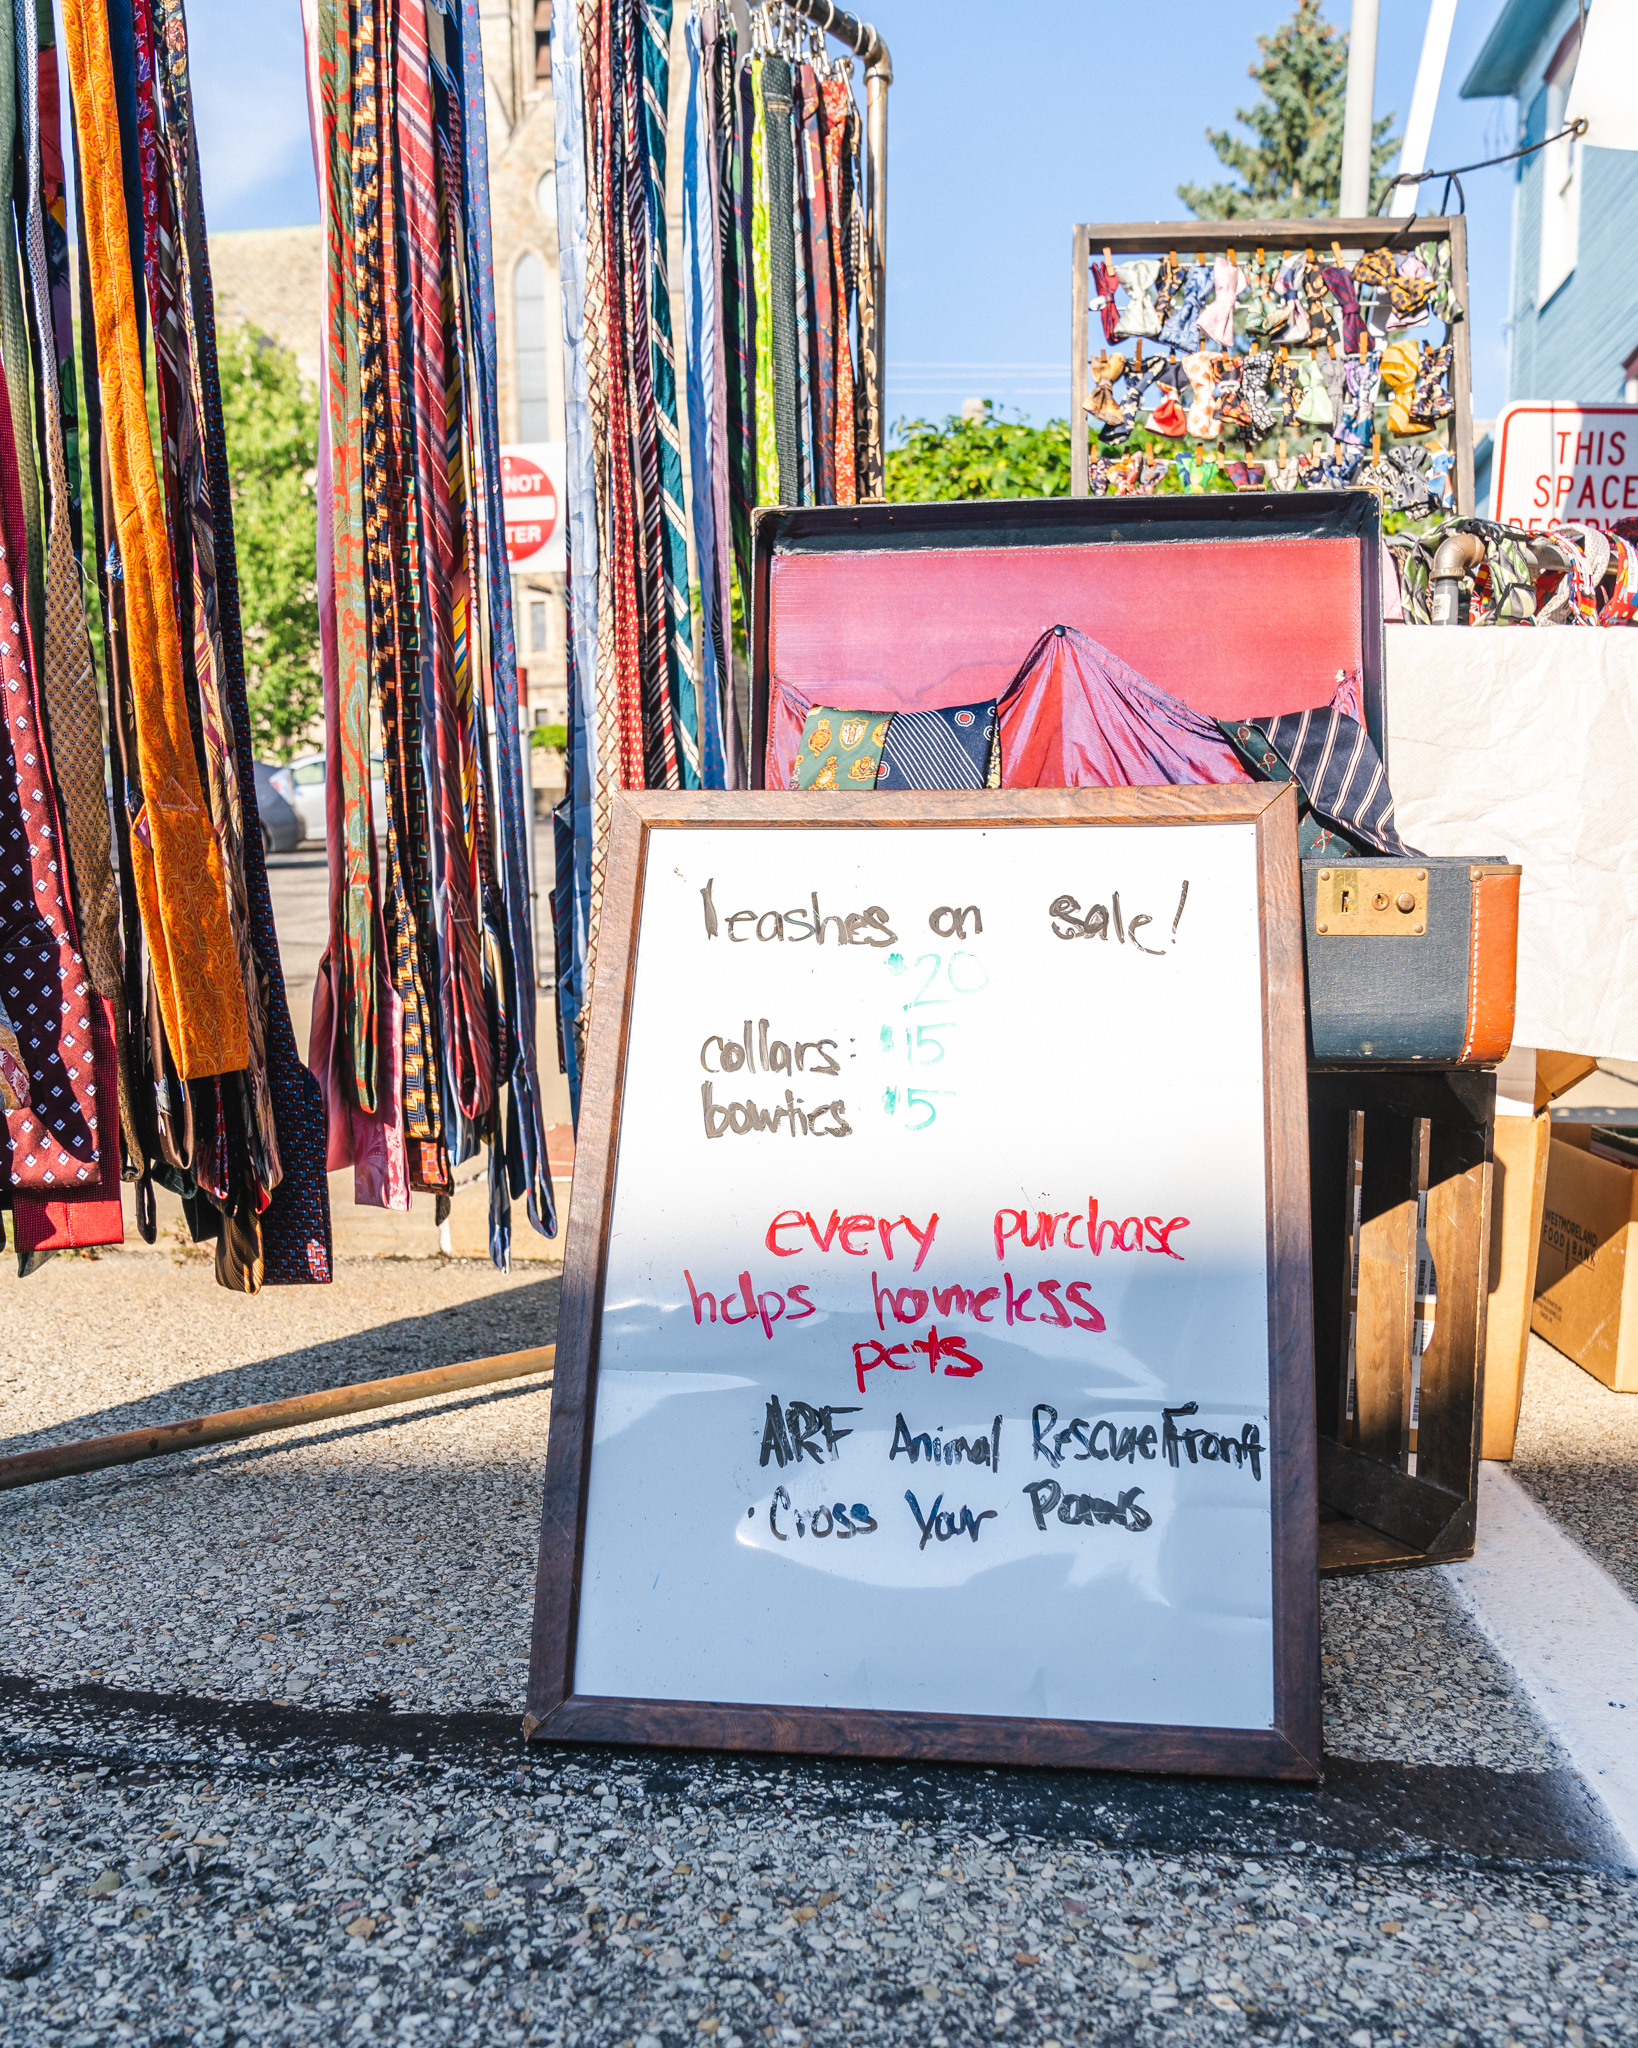 NOT
TER
THIS
SPACE
RESERV
leashes on sale!
$20
collars: $15
bowties $5
every purchase
helps homeless
pets
ARF Animal Rescue Front
· Cross Your Paws
WESTMORELAND
FOOD BANK